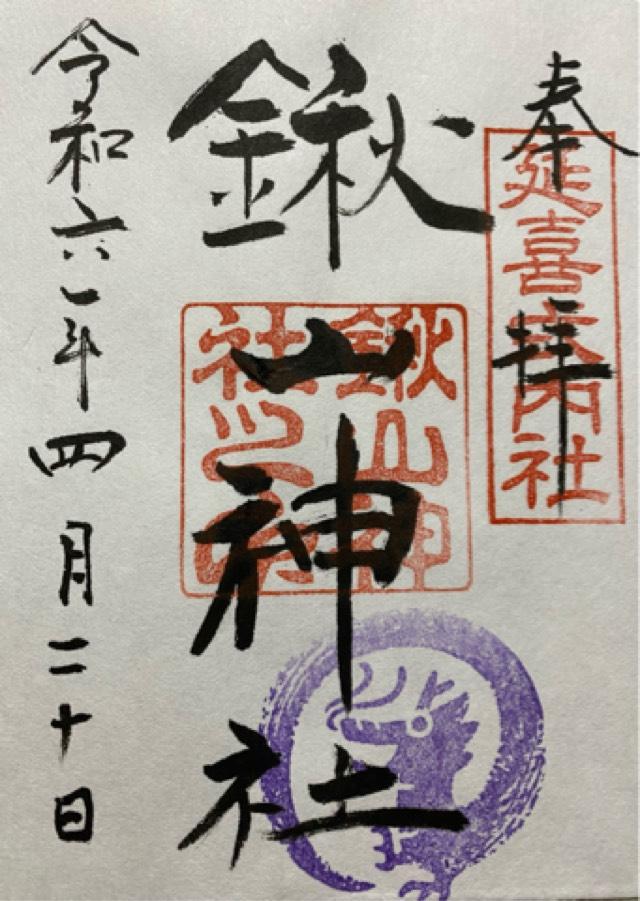 奉拝
延喜式内社
鍬山神社
鍬山神
社之印
令和六年四月二十日